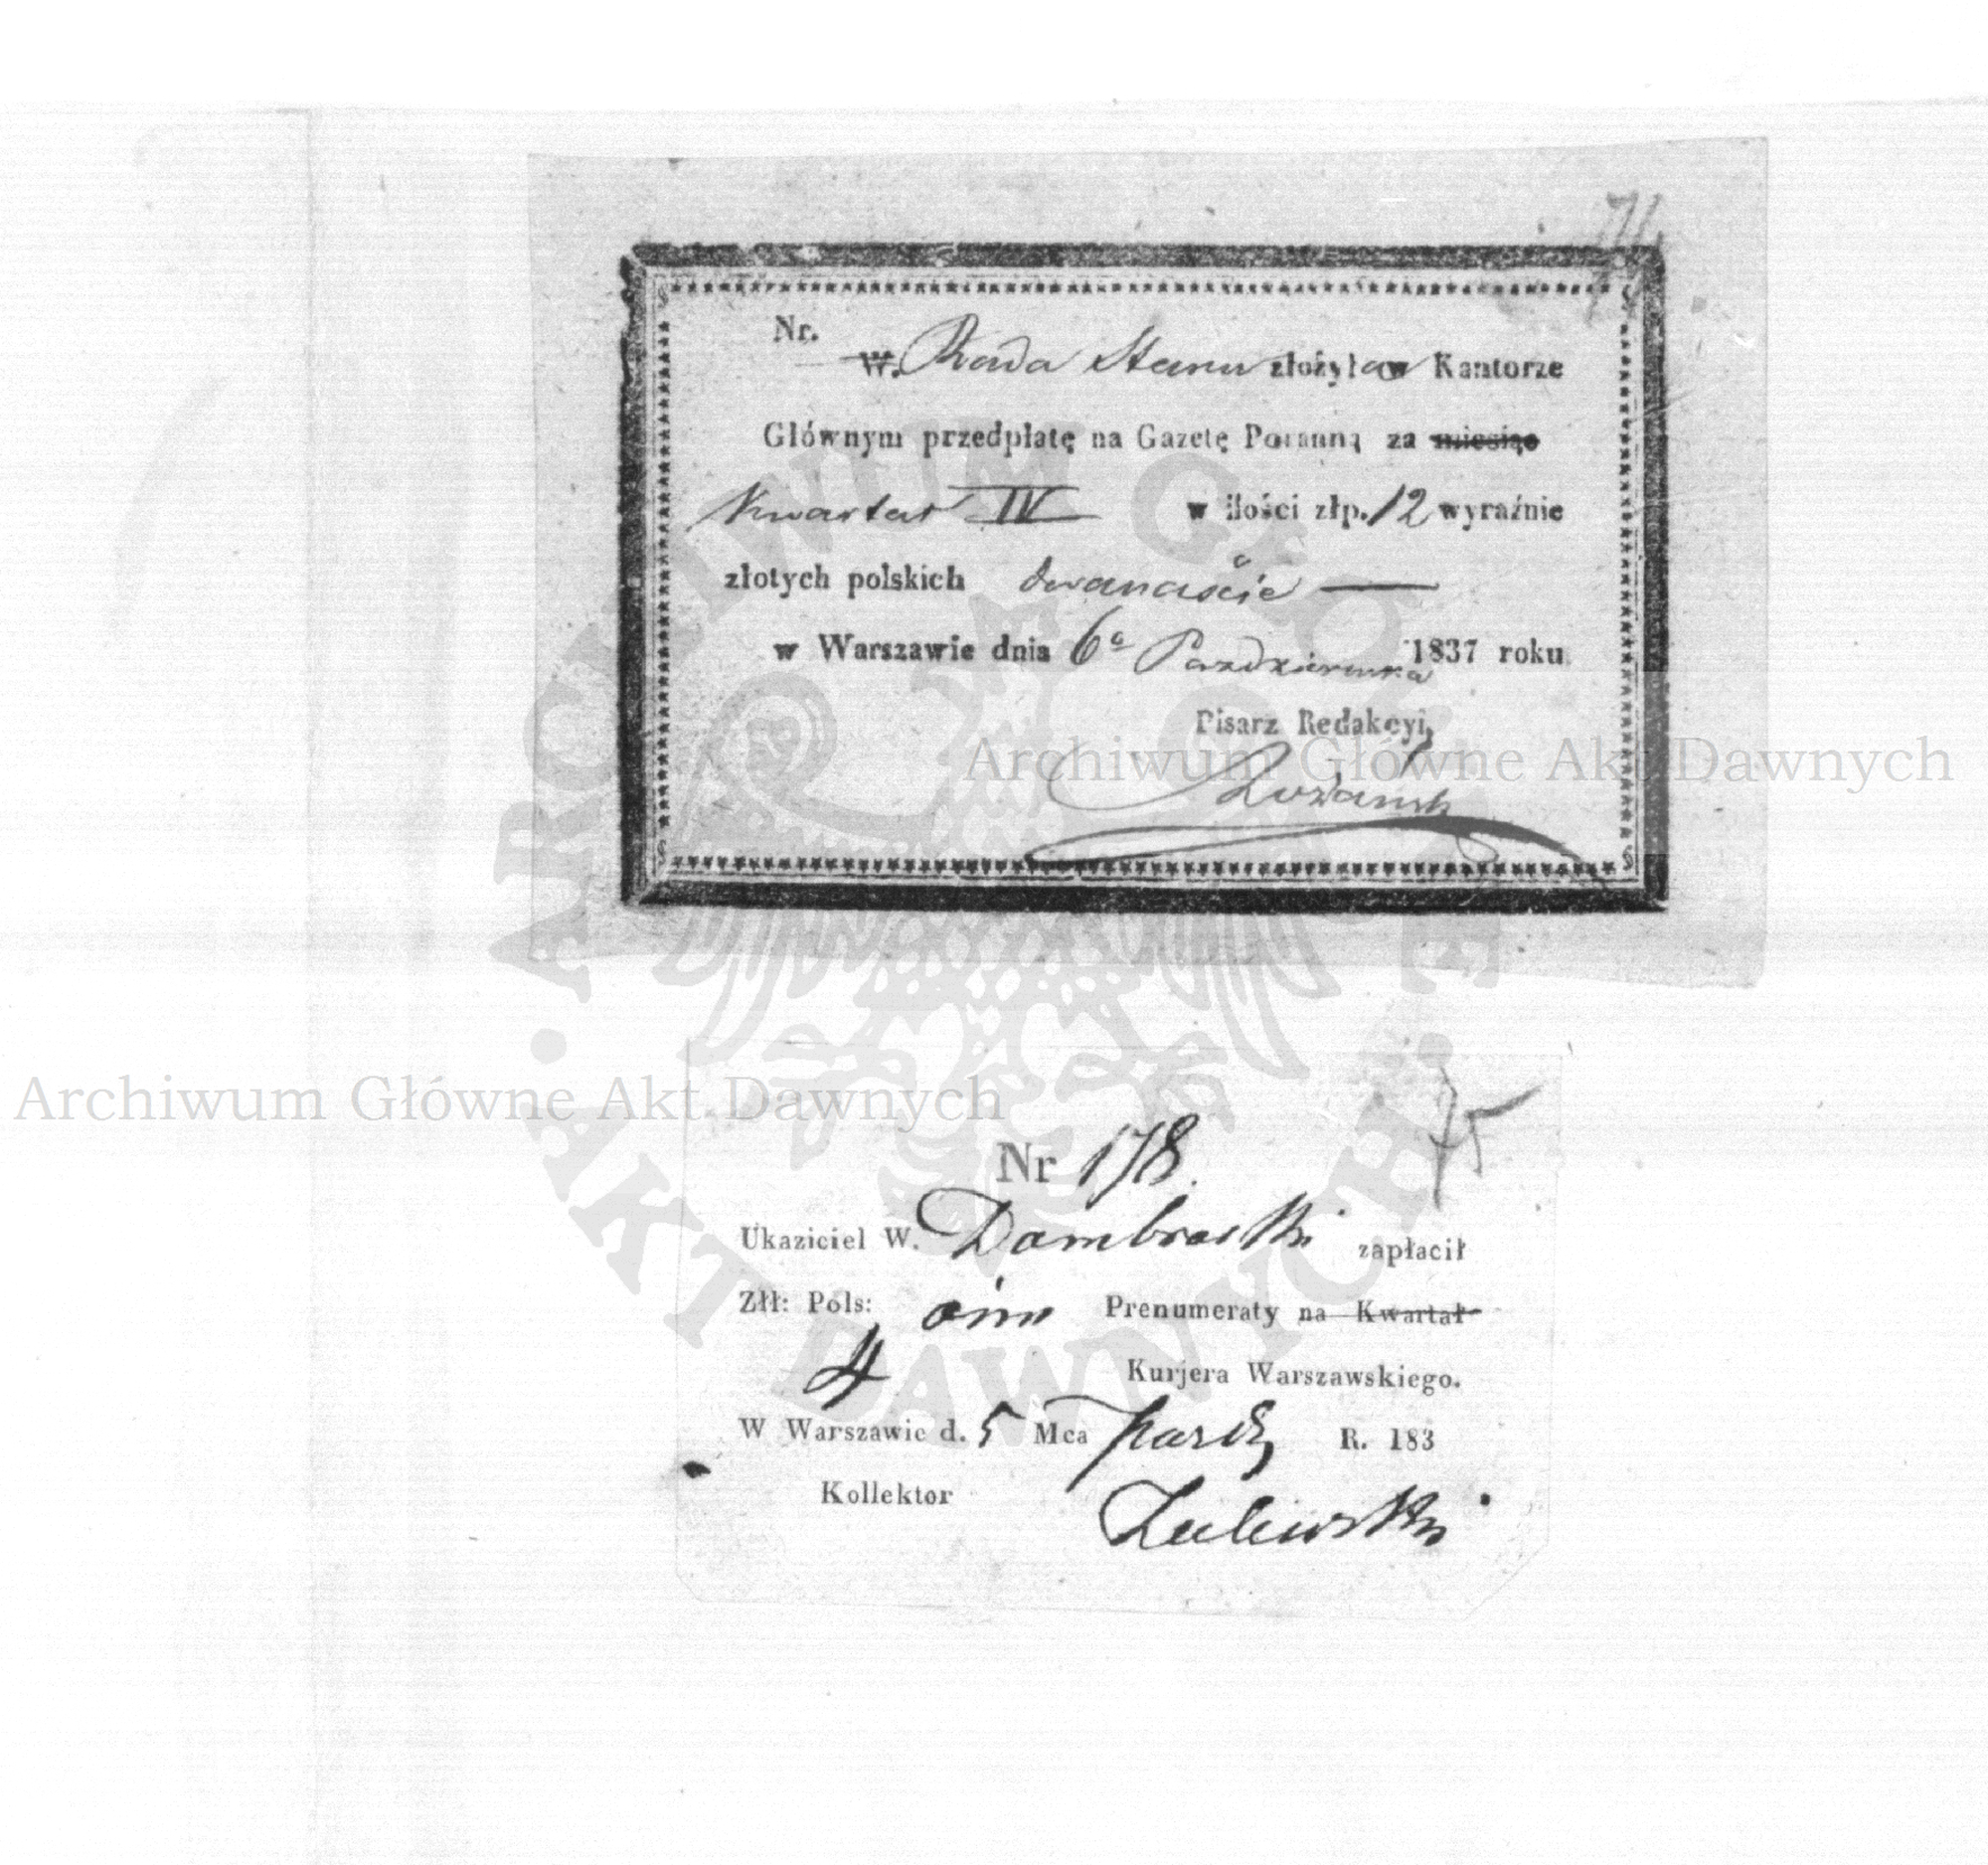 74
Nr.
W. Rada Stanu złożyła w Kantorze
Głównym przedpłatę na Gazetę Poranną za miesiąc
Kwartał IV w ilości złp. 12 wyraźnie
złotych polskich dwanaście —
w Warszawie dnia 6º Pazdziernika 1837 roku
Pisarz Redakcyi,
Archiwum Główne Akt Dawnych
75
Archiwum Główne Akt Dawnych
Nr 178.
Ukaziciel W. Dombroski zapłacił
Złł: Pols: Prenumeraty na Kwartał
4 Kurjera Warszawskiego.
W Warszawie d. 5 Mca R. 183
Kollektor Zalewski
ARCHIWUM GŁÓWNE
AKT DAWNYCH